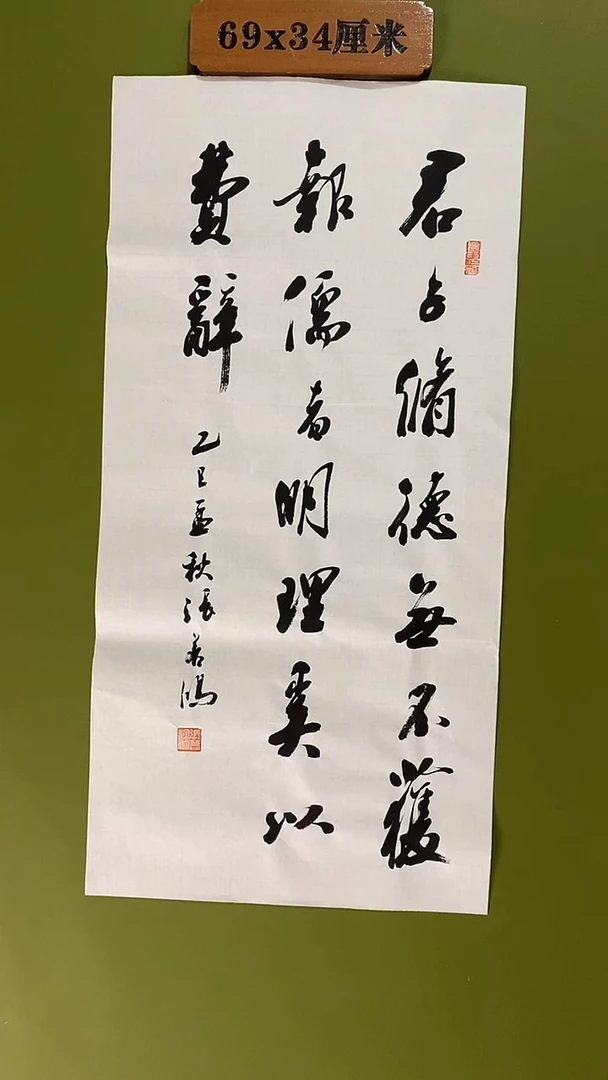 69x34厘米
君子脩德無不獲
報儒者明理奚以
費辭
乙巳孟秋張善鴻